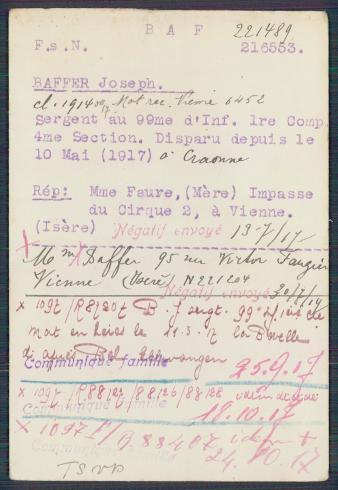 B A F
221489
F.s.N. 216553.
BAFFER Joseph.
cl. 1914 Mat rec. Vienne 6452
Sergent au 99me d'Inf. 1re Comp
4me Section. Disparu depuis le
10 Mai (1917) à Craonne
Rép: Mme Faure,(Mère) Impasse
du Cirque 2, à Vienne.
(Isère) Négatif envoyé 13-7/17
Mme Baffer 95 rue Victor Faugier
Vienne (Isère) N221204
Négatif envoyé 30/7/17
x 1097 /R8420 B. J. sergt. 99e
Mort 11.5.17 la
d'après
Communiqué famille 25.9.17
x 1097 /R88127 /88126/88128 idem
Communiqué famille 18.10.17
x 1097 /R88407 idem +
Communiqué famille 24.10.17
TSVP